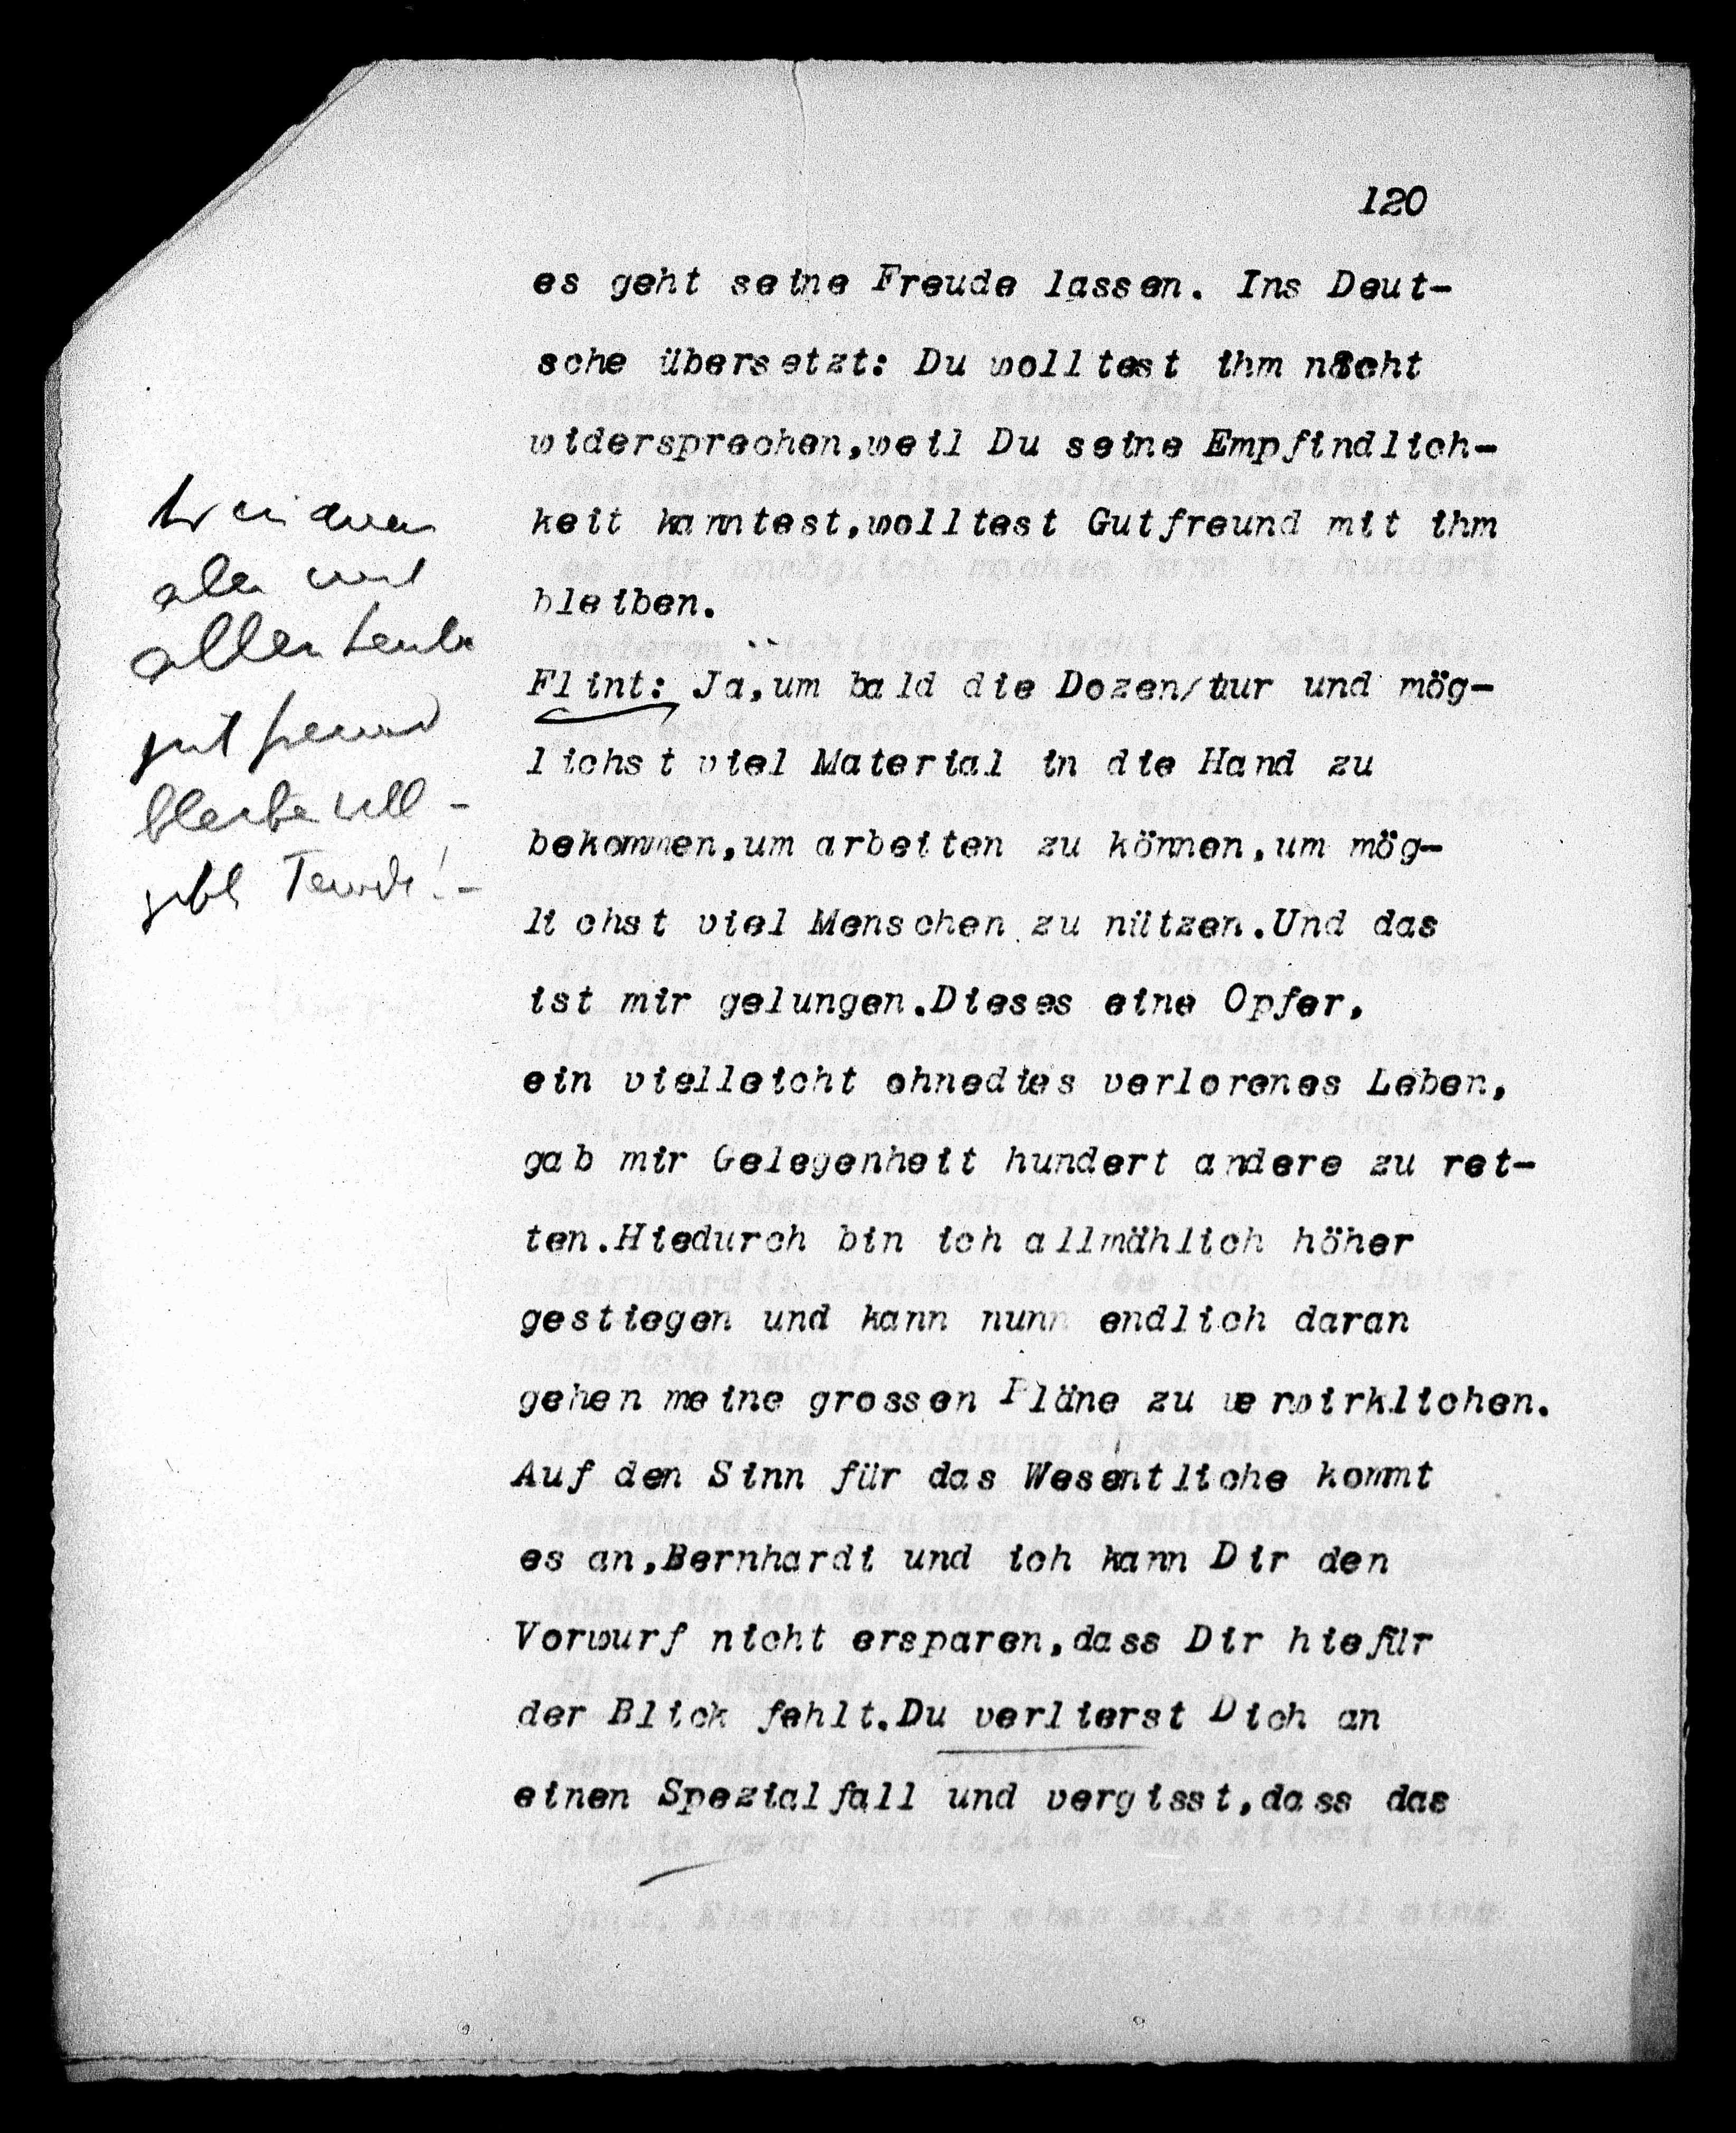 120
es geht seine Freude lassen. Ins Deut-
sche übersetzt: Du wolltest ihm nicht
widersprechen,weil Du seine Empfindlich-
keit kanntest,wolltest Gutfreund mit ihm
bleiben.
Flint: Ja,um bald die Dozen/tur und mög-
lichst viel Material in die Hand zu
bekommen,um arbeiten zu können,um mög-
lichst viel Menschen zu nützen.Und das
ist mir gelungen.Dieses eine Opfer,
ein vielleicht ohnedies verlorenes Leben,
gab mir Gelegenheit hundert andere zu ret-
ten.Hiedurch bin ich allmählich höher
gestiegen und kann nunn endlich daran
gehen meine grossen Pläne zu verwirklichen.
Auf den Sinn für das Wesentliche kommt
es an,Bernhardi und ich kann Dir den
Vorwurf nicht ersparen,dass Dir hiefür
der Blick fehlt.Du verlierst Dich an
einen Spezialfall und vergisst,dass das
allen
gut freund